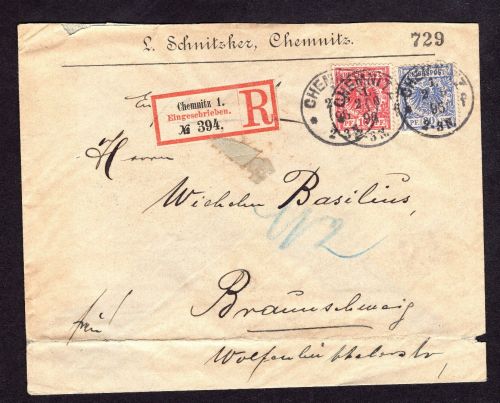 L. Schnitzker, Chemnitz.
729
Chemnitz 1.
Eingeschrieben.
№ 394.
R
CHEMNITZ
CHEMNITZ
1
96
2-3N.
Herrn
Wilhelm Basilius,
112
Braunschweig
frei
Wolfenbüttelerstr,